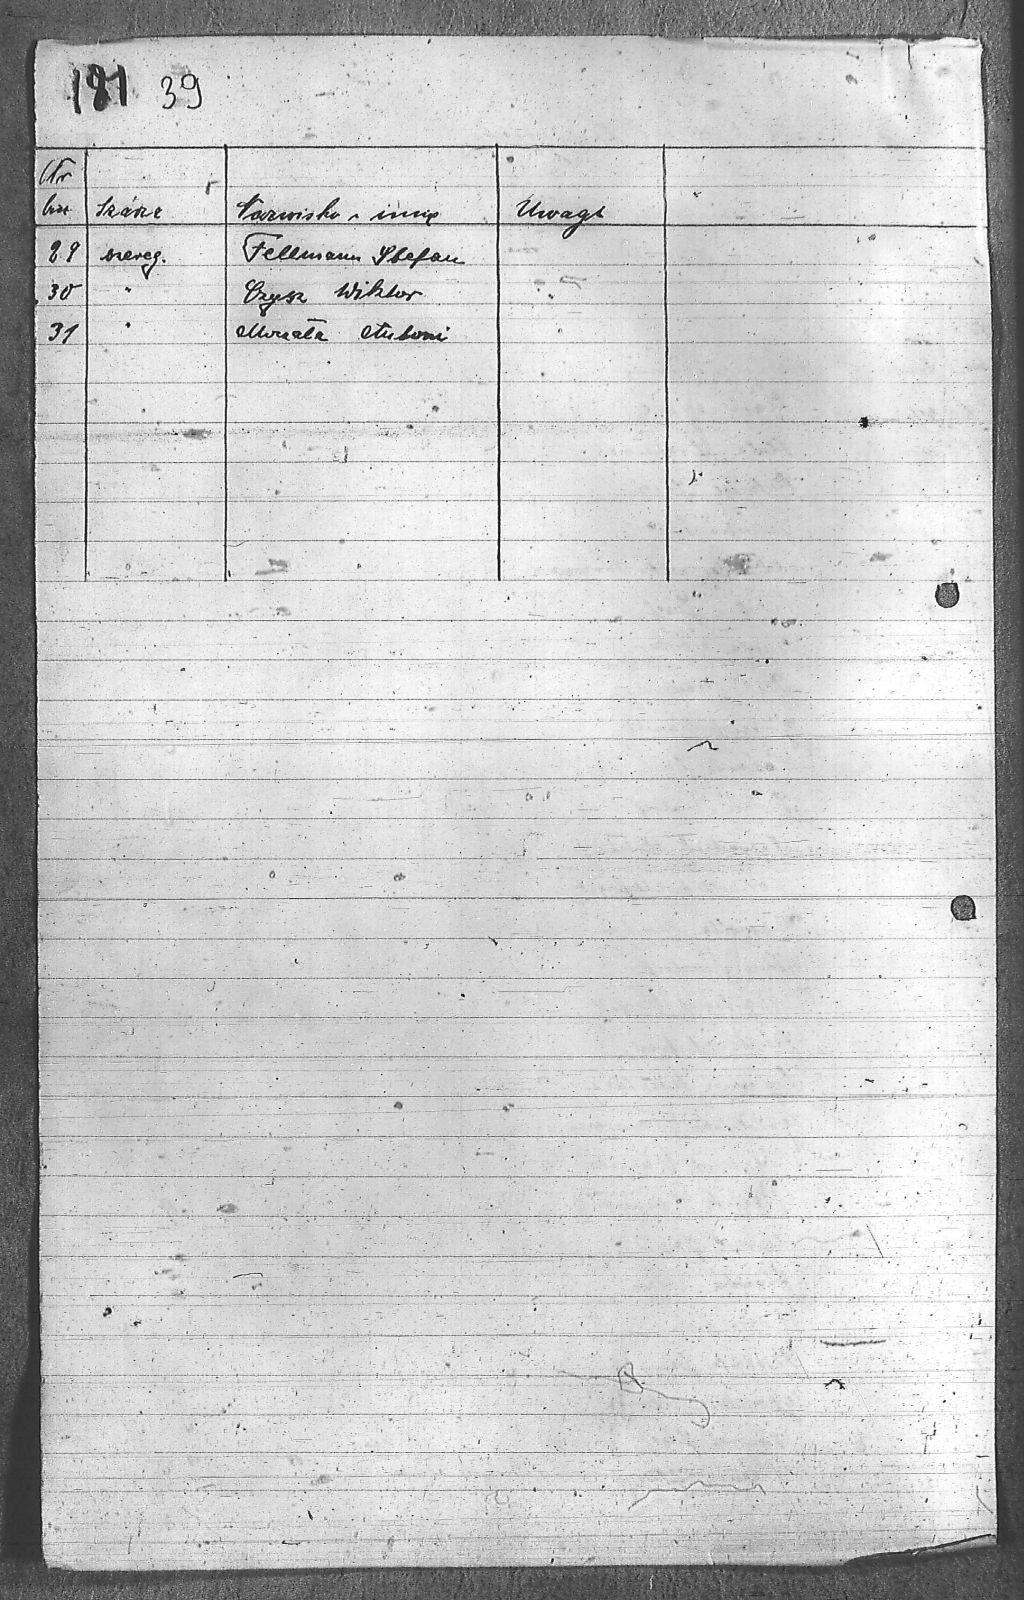 181 39
Nr
bież Nazwisko i imię Uwagi
29 szereg. Fellmann Stefan
30 " Czysz Wiktor
31 " Antoni